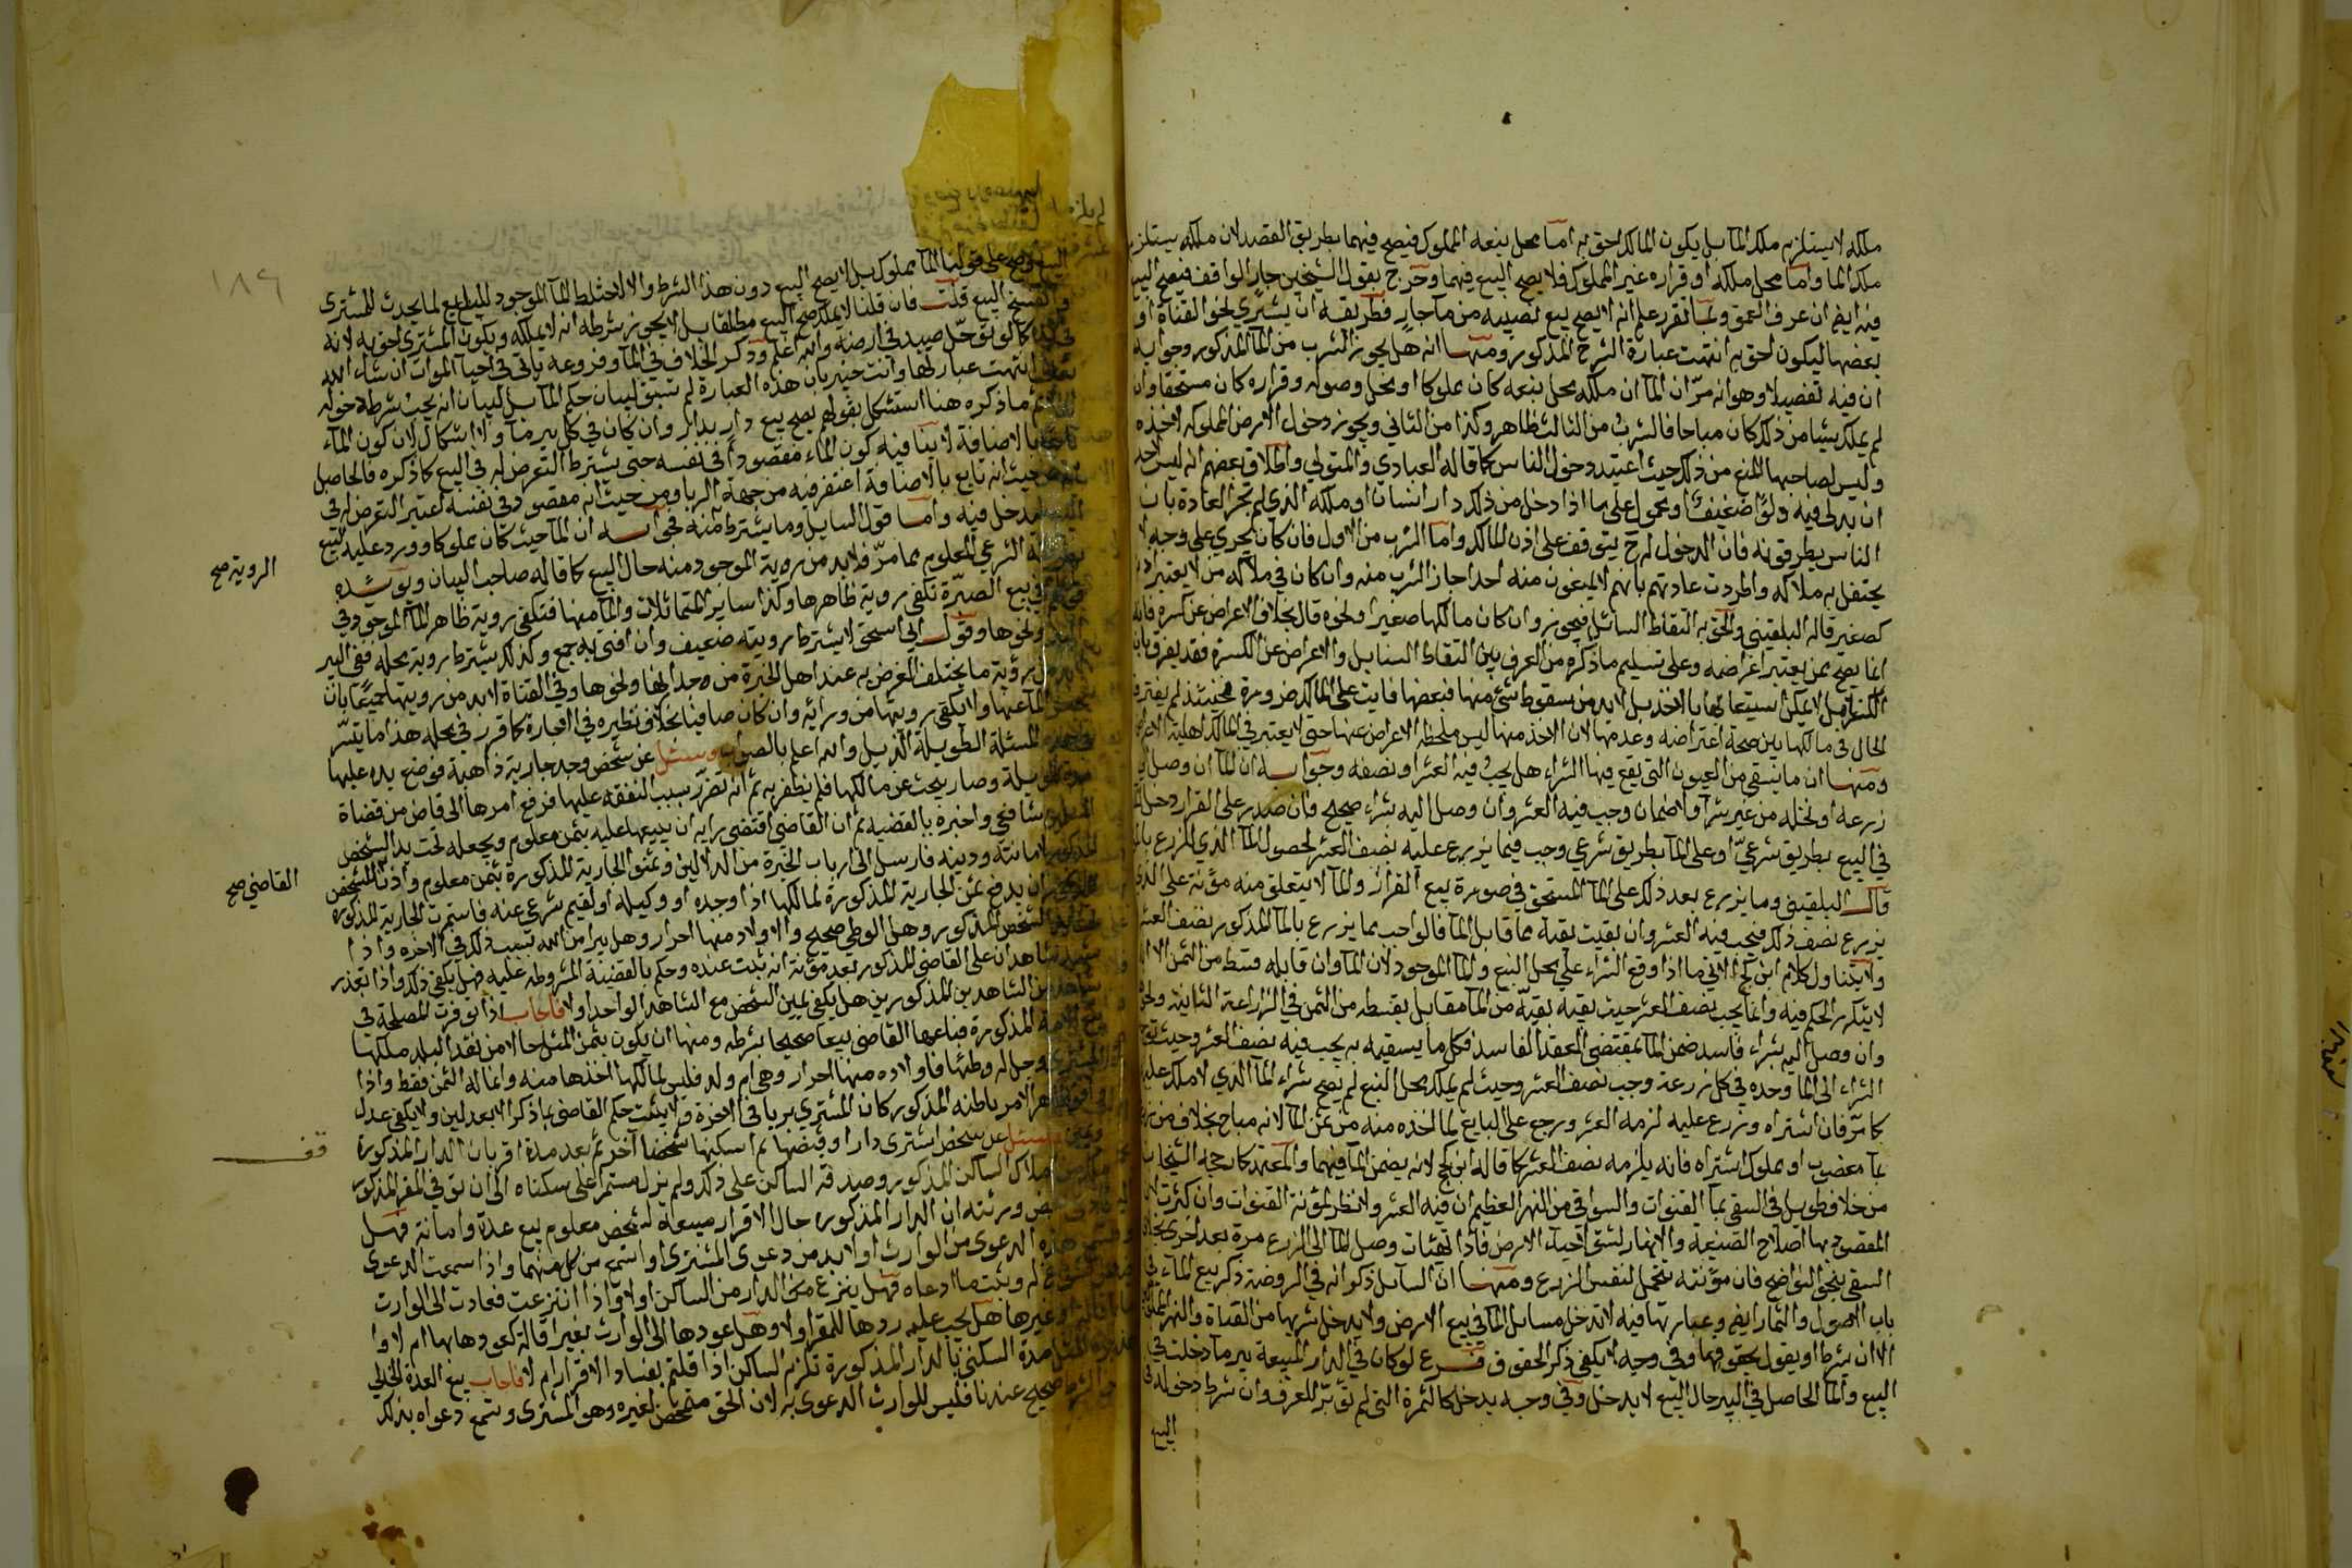 ملكه لا يستلزم ملك الما بل يكون المالك احق به اما محل نبعه المملوك فيصح فيهما بطريق القصد لان ملكه يستلزم
ملك الما واما محل ملكه او قراره غير المملوك فلا يصح البيع فيهما وخرج بقول الشيخين جار الواقف فيصح البيع
فيه ايضا ان عرف العمق وبما تقرر علم انه لا يصح بيع نصيبه من ما جار فطريقه ان يشتري نحو القناة او
بعضها ليكون احق به انتهت عبارة الشرح المذكور ومنها انه هل يجوز الشرب من الما المذكور وجوابه
ان فيه تفصيلا وهو انه مر ان الما ان ملك محل نبعه كان مملوكا او محل وصوله وقراره كان مستحقا وان
لم يملك شيا من ذلك كان مباحا فالشرب من الثالث ظاهر وكذا من الثاني ويجوز دخول الارض المملوكه لاخذه
وليس لصاحبها المنع من ذلك حيث اعتيد دخول الناس كما قاله العبادي والمتولي واطلاق بعضهم انه ليس لاحد
ان يدلي فيه دلوا ضعيف او محمول على ما اذا دخل من ذلك دار انسان او ملكه الذي لم تجر العادة بان
الناس يطرقونه فان الدخول له ح يتوقف على اذن المالك واما الشرب من الاول فان كان يجري على وجه لا
يحتفل به ملاكه واطردت عادتهم بانهم لا يمنعون منه احدا جاز الشرب منه وان كان في ملاكه من لا يعتبر اذنه
كصغير قاله البلقيني والحق به التقاط السنابل فيجوز وان كان مالكها صغيرا ونحوه قال بخلاف الاعراض عن كسرة فانه
انما يصح ممن يعتبر اعراضه وعلى تسليم ما ذكره من الفرق بين التقاط السنابل والاعراض عن الكسرة فقد يفرق بان
السنابل لا يمكن استيعابها بالاخذ بل لا بد من سقوط شي منها فبعضها فايت على المالك ضرورة فحينئذ لم يفترق
الحال في مالكها بين صحة اعراضه وعدمها لان الاخذ منها ليس ملحظه الاعراض عنها حتى لا يعتبر في المالك اهلية الاعراض
ومنها ان ما يسقى من العيون التي يقع فيها الشراء هل يجب فيه العشر او نصفه وجوابه ان الما ان وصل الى
زرعه او نخله من غير شرا ولا ضمان وجب فيه العشر وان وصل اليه بشراء صحيح فان صدر على القرار ودخل الما
في البيع بطريق شرعي او على الما بطريق شرعي وجب فيما يزرع عليه نصف العشر لحصول الما الذي المزرع بالما
قال البلقيني وما يزرع بعد ذلك على الما المستحق في صورة بيع القرار والما لا يتعلق منه مؤنة على الذي
يزرع نصف ذلك فيجب فيه العشر وان بقيت بقية مما قابل الما فالواجب بما يزرع بالما المذكور نصف العشر
ولا يتناول كلام ابن كج الاتي ما اذا وقع الشراء على محل النبع والما الموجود لان الما وان قابله قسط من الثمن الا ان
لا يتكرر الحكم فيه وانما يجب نصف العشر حيث بقيه بقية من الما مقابل بقسطه من الثمن في الزراعة الثانية
وان وصل اليه بشراء فاسد ضمن الما بمقتضى العقد الفاسد فكل ما يسقيه به يجب فيه نصف العشر وحيث وقع
الشراء الى الما وحده في كل زرعة وجب نصف العشر وحيث لم يملك محل النبع لم يصح شراء الما الذي لا ملك عليه
كما مر فان اشتراه وزرع عليه لزمه العشر ورجع على البايع لما اخذه منه من ثمن الما لانه مباح بخلاف من زرع
بما مغصوب او مملوك اشتراه فانه يلزمه نصف العشر كما قاله ابن كج لانه يضمن الما فيهما والمعتمد كما رجحه الشيخان
من خلاف طويل في السقي بما القنوات والسواقي من النهر العظيم ان فيه العشر ولا نظر لمؤنة القنوات وان كثرت لان
المقصود بها اصلاح الضيعة والانهار لتشق لاحياء الارض فاذا تهيئات وصل الما الى الزرع مرة بعد اخرى بخلاف
السقي بنحو النواضح فان مؤنته تتحمل لنفس الزرع ومنها ان السايل ذكر انه في الروضة ذكر بيع الماء في
باب الاصول والثمار ايضا وعبارتها فيه لا تدخل مسايل الما في بيع الارض ولا يدخل شربها من القناة والنهر المملوكين
الا ان شرط او يقول بحقوقها وفي وجه لا يكفي ذكر الحقوق فرع لو كان في الدار المبيعة بير ما دخلت في
البيع والما الحاصل في البير حال البيع لا يدخل وفي وجه يدخل كالثمرة التي لم تؤبر للعرف وان شرط دخوله في
البيع
١٨٩
البيع صح على قولنا الما مملوك بل لا يصح البيع دون هذا الشرط والا لاختلط الما الموجود للبايع لما يحدث للمشتري
وانفسخ البيع قلت فان قلنا لا يملك صح البيع مطلقا بل لا يجوز شرطه انه لا يملكه ويكون المشتري احق به لانه
في يده كما لو توحل صيد في ارضه والله اعلم وذكر الخلاف في الما وفروعه ياتي في احيا الموات ان شاء الله
تعالى انتهت عبارتها وانت خبير بان هذه العبارة لم تسق لبيان حكم الما بل لبيان انه يجب شرط دخوله
ثم ما ذكره هنا استشكل بقولهم يصح بيع دار بدار وان كان في كل بير ما ولا اشكال لان كون الماء
تابعا بالاضافة لا ينافيه كون الماء مقصودا في نفسه حتى يشترط التعرض له في البيع كما ذكره فالحاصل
انه من حيث انه تابع بالاضافة اغتفر فيه من جهة الربا ومن حيث انه مقصود في نفسه اعتبر التعرض له في
البيع ليدخل فيه واما قول السايل وما يشترط منه فجوابه ان الما حيث كان مملوكا وورد عليه البيع
بطريقه الشرعي المعلوم مما مر فلا بد من روية الموجود منه حال البيع كما قاله صاحب البيان ويؤيده
قولهم في بيع الصبرة تكفي روية ظاهرها وكذا ساير المتماثلات والما منها فتكفي روية ظاهر الما الموجود في
البير ونحوها وقول ابي اسحق لا يشترط رويته ضعيف وان افتى به جمع وكذلك يشترط روية محله ففي البير
لا بد من رؤية ما يختلف الغرض به عند اهل الخبرة من جدرانها ونحوها وفي القناة لابد من رويتها جميعا بان
يحبس الما عنها ولا يكفي رويتها من ورائه وان كان صافيا بخلاف نظيره في الاجارة كما قرر في محله هذا ما تيسر
في هذه المسئلة الطويلة الذيل والله اعلم بالصواب وسئل عن شخص وجد جارية ذاهبة فوضع يده عليها
مدة طويلة وصار يبحث عن مالكها فلم يظفر به ثم انه تضرر بسبب النفقه عليها فرفع امرها الى قاض من قضاة
المسلمين شافعي واخبره بالقضيه ثم ان القاضي اقتضى رايه ان يبيعها عليه بثمن معلوم ويجعله تحت يد الشخص
المذكور لامانته ودينه فارسل الى ارباب الخبرة من الدلالين وثمنوا الجارية المذكورة بثمن معلوم واذن للشخص
المذكور ان يدفع ثمن الجارية المذكورة لمالكها اذا وجده او وكيله او لقيم شرعي عنه فاستمرت الجارية المذكوره
تحت يد الشخص المذكور وهل الوطي صحيح والاولاد منها احرار وهل يبرا من الله بسبب ذلك في الاخره واذا
شهد شاهدان على القاضي المذكور بعد موته انه ثبت عنده وحكم بالقضية المشروطه عليه فهل يكفي ذلك واذا تعذر
شاهد من الشاهدين المذكورين هل يكفي يمين الشخص مع الشاهد الواحد او لا فاجاب اذا توفرت المصلحة في
بيع الامة المذكورة فباعها القاضي بيعا صحيحا بشرطه ومنها ان يكون بثمن المثل حالا من نقد البلد ملكها
المشتري وحل له وطئها فاولاده منها احرار وهي ام ولد فليس لمالكها اخذها منه وانما له الثمن فقط واذا
وافق ظاهر الامر باطنه المذكور كان المشتري بريا في الاخرة ولا يثبت حكم القاضي بما ذكر الا بعدلين ولا يكفي عدل
ويمين وسئل عن شخص اشترى دارا وقبضها ثم اسكنها شخصا آخر ثم بعد مدة اقر بان الدار المذكورة
ملك من املاك الساكن المذكور وصدقه الساكن على ذلك ولم يزل مستمرا على سكناه الى ان توفي المقر المذكور
فادعى بعض ورثته ان الدار المذكورة حال الاقرار مبيعة لشخص معلوم بيع عدة وامانة فهل
تسمع هذه الدعوى من الوارث او لا بد من دعوى المشتري او تسمع من كل منهما واذا سمعت الدعوى
له وثبت ما ادعاه فهل ينزع من الدار من الساكن او لا واذا انتزعت فعادت الى الوارث
باقالة او غيرها هل يجب عليه ردها للمقر او لا وهل عودها الى الوارث بغير اقالة كعودها بها ام لا وا
اجرة المثل مدة السكنى بالدار المذكورة تلزم الساكن اذا قلتم بفساد الاقرار ام لا فاجاب بيع العدة الخالي
صحيح عندنا فليس للوارث الدعوى به لان الحق متمحض لغيره وهو المشتري وتسمع دعواه بذلك
الروية صح
القاضي صح
قف